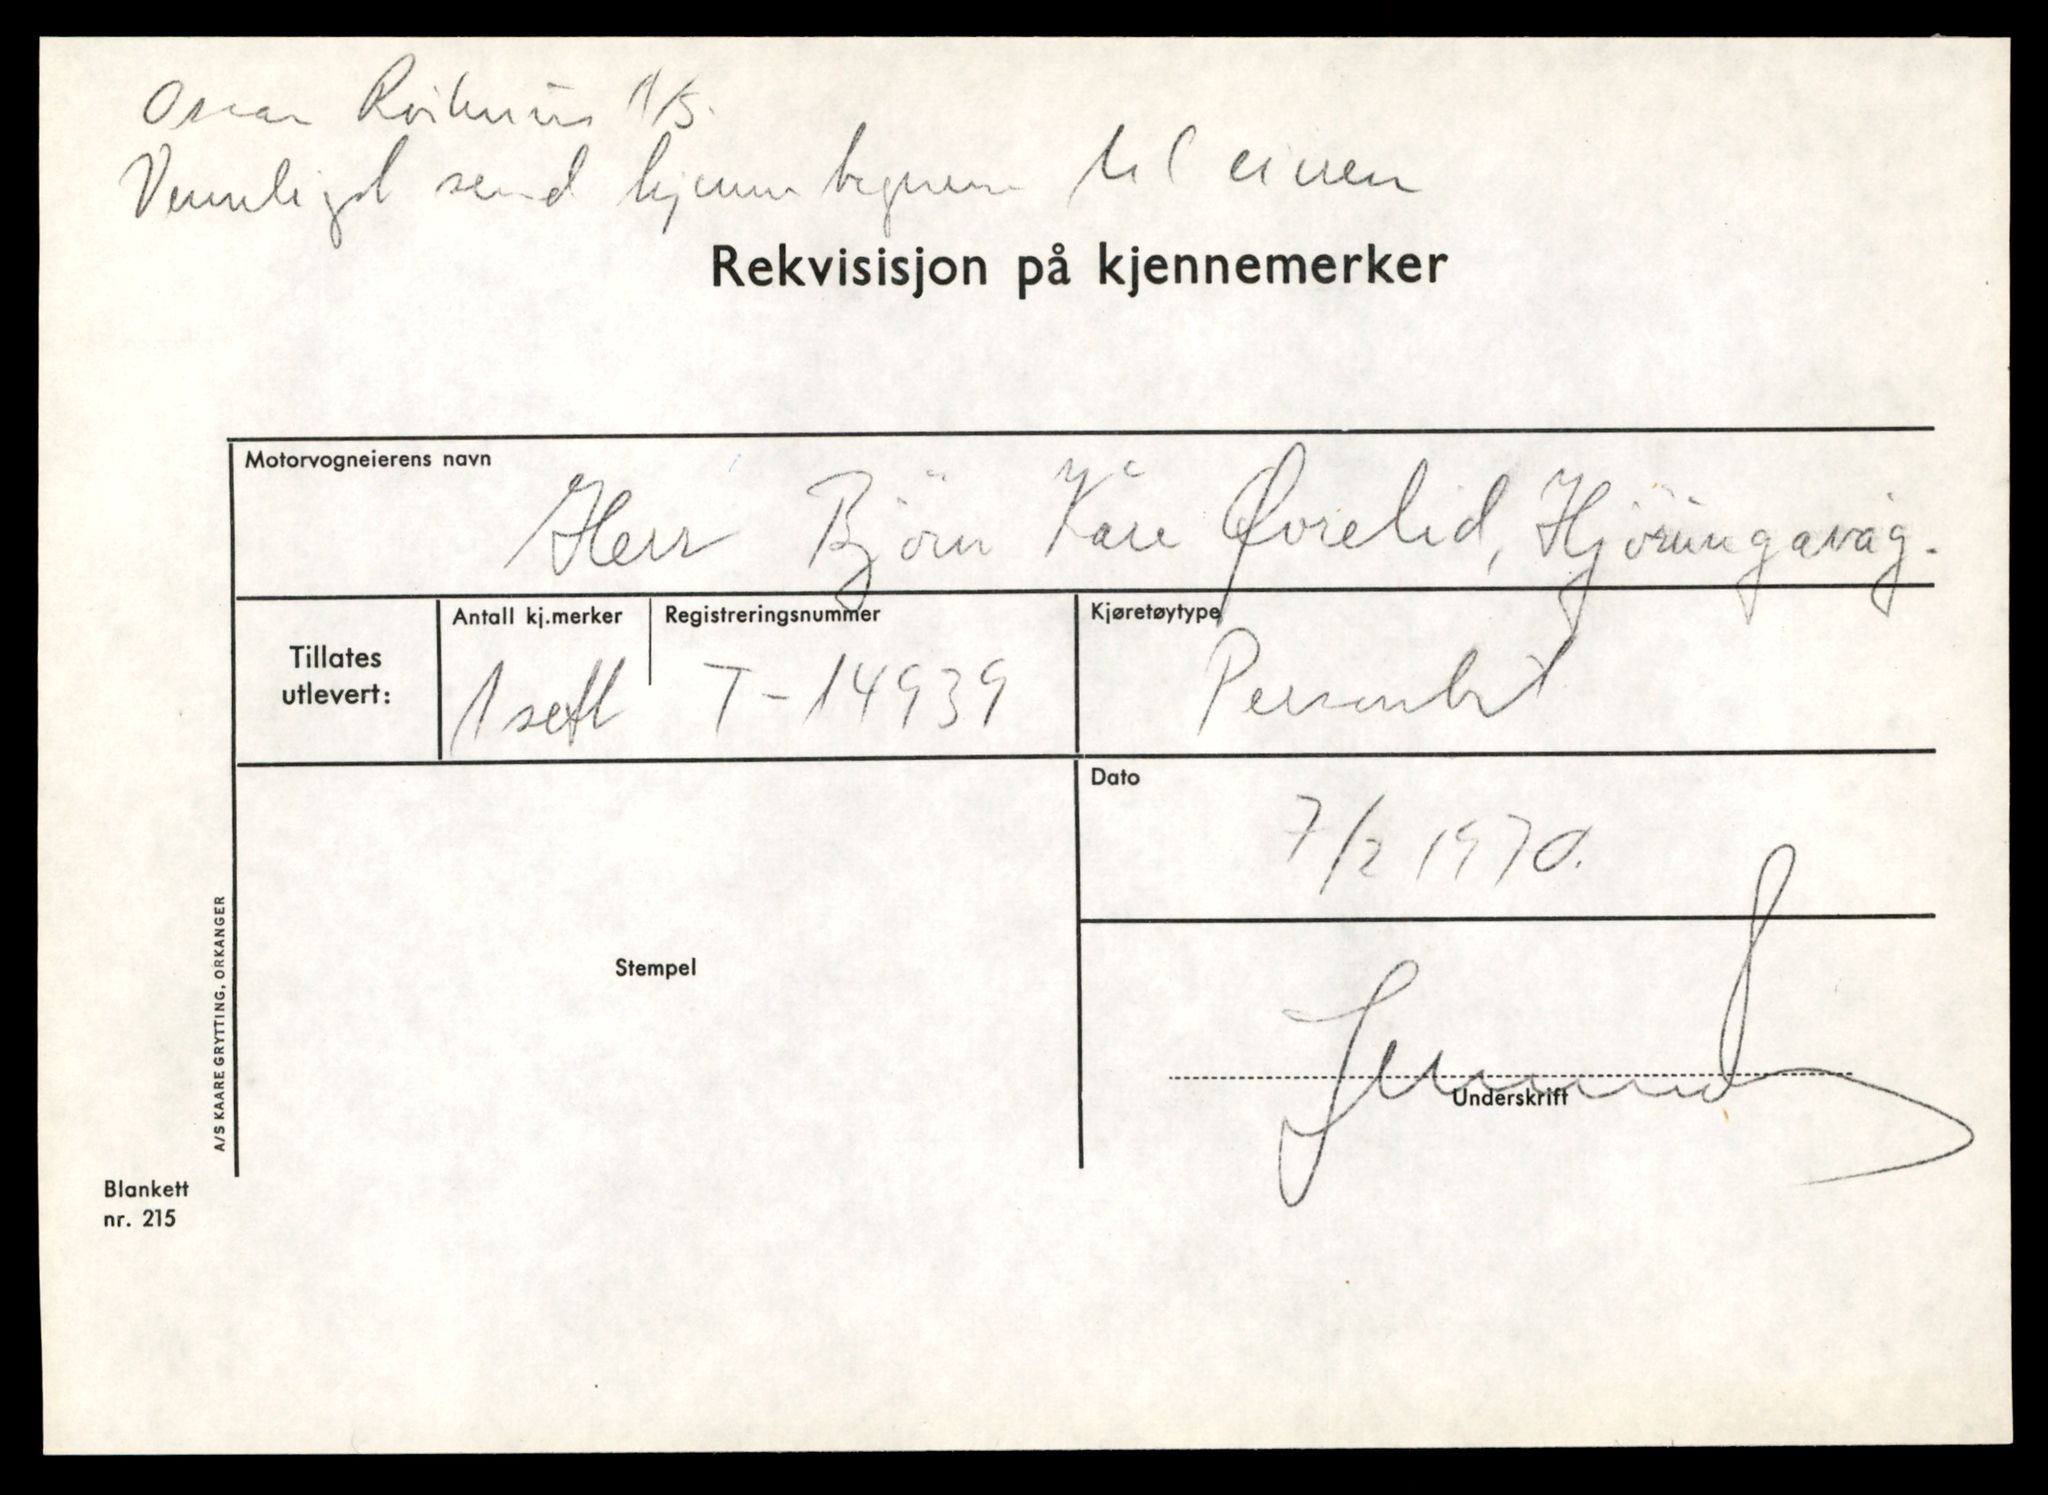 Oscar A/S.
Vennligst send kjennetegnene til eieren
Rekvisisjon på kjennemerker
Motorvogneierens navn
Herr Björn Kåre Øvrelid, Hjörungavåg.
Tillates utlevert:
Antall kj.merker
1 sett
Registreringsnummer
T-14939
Kjøretøytype
Personbil
Dato
7/2 1970.
Stempel
Underskrift
A/S KAARE GRYTTING, ORKANGER
Blankett
nr. 215